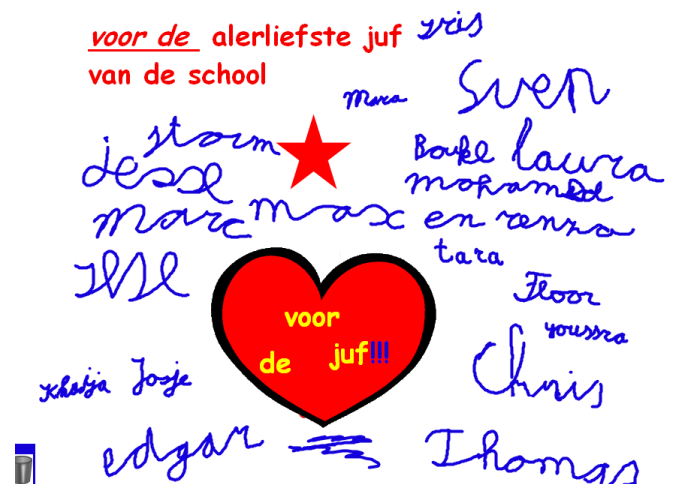 voor de alerliefste juf yris
van de school
Mara Sven
storm
jesse
Boukl laura
mohamed
marc max en renzo
tara
Ilse
Floor
voor
youssra
de juf!!!
Chris
Khadja Josje
edgar Thomas